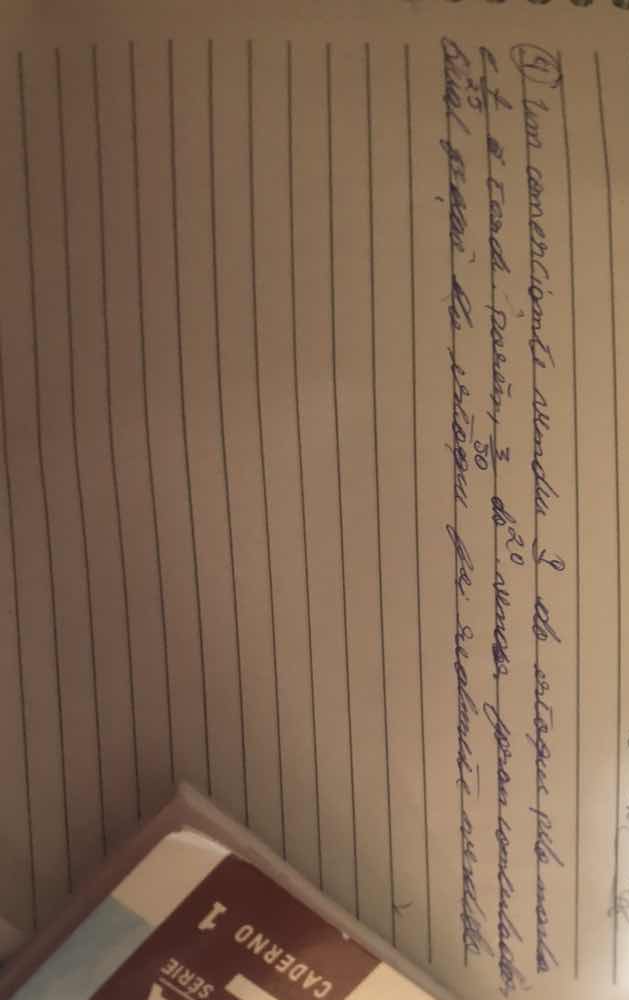 4) Um comerciante vendeu 9/20 do estoque pela manhã
e 4/25 à tarde. Porém, 3/50 das vendas foram canceladas,
Qual fração do estoque foi realmente vendida
CADERNO 1
SÉRIE